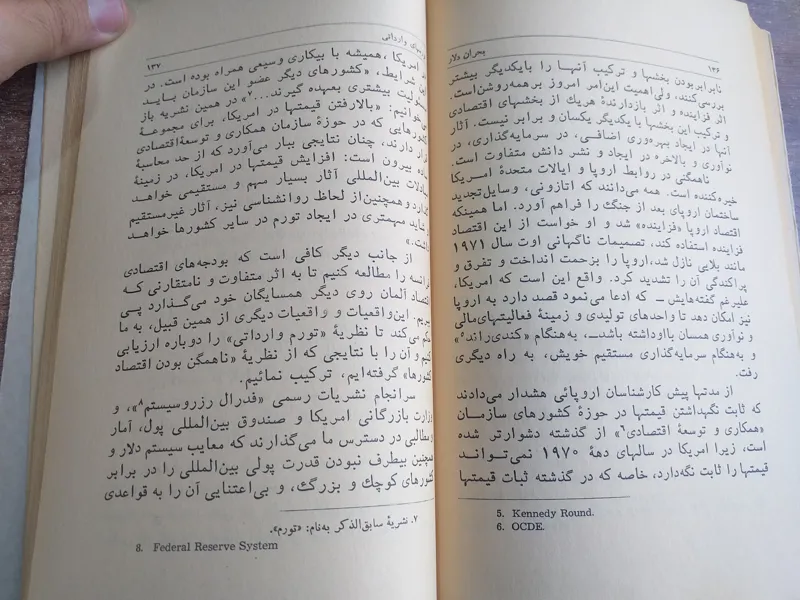 ۱۳۶
بحران دلار
نابرابر بودن بخشها و ترکیب آنها را بایکدیگر بیشتر
بررسی کنند، ولی اهمیت این امر امروز بر همه روشن است.
اثر فزاینده و اثر بازدارندۀ هریك از بخشهای اقتصادی
و ترکیب این بخشها با یکدیگر یکسان و برابر نیست. آثار
آنها در ایجاد بهره‌وری اضافی، در سرمایه‌گذاری، در
نوآوری و بالاخره در ایجاد و نشر دانش متفاوت است.
ناهمگنی در روابط اروپا و ایالات متحدۀ امریکا
خیره‌کننده است. همه می‌دانند که اتازونی، وسایل تجدید
ساختمان اروپای بعد از جنگ را فراهم آورد. اما همینکه
اقتصاد اروپا «فزاینده» شد و او خواست از این اقتصاد
فزاینده استفاده کند، تصمیمات ناگهانی اوت سال ۱۹۷۱
مانند بلایی نازل شد، اروپا را بزحمت انداخت و تفرق و
پراکندگی آن را تشدید کرد. واقع این است که امریکا،
علیرغم گفته‌هایش ــ که ادعا می‌نمود قصد دارد به اروپا
نیز امکان دهد تا واحدهای تولیدی و زمینۀ فعالیتهای مالی
و نوآوری همسان با او داشته باشد ــ، به‌هنگام «کندی راند»۵
و به‌هنگام سرمایه‌گذاری مستقیم خویش، به راه دیگری
رفت.
از مدتها پیش کارشناسان اروپائی هشدار می‌دادند
که ثابت نگهداشتن قیمتها در حوزۀ کشورهای سازمان
«همکاری و توسعۀ اقتصادی»۶ از گذشته دشوارتر شده
است، زیرا امریکا در سالهای دهۀ ۱۹۷۰ نمی‌تواند
قیمتها را ثابت نگه‌دارد، خاصه که در گذشته ثبات قیمتها
5. Kennedy Round.
6. OCDE.
وارداتی
۱۳۷
امریکا، همیشه با بیکاری وسیعی همراه بوده است. در
این شرایط، «کشورهای دیگر عضو این سازمان باید
بیشتری بعهده گیرند...»۷ در همین نشریه باز
خوانیم: «بالارفتن قیمتها در امریکا، برای مجموعۀ
کشورهایی که در حوزۀ سازمان همکاری و توسعۀ اقتصادی
دارند، چنان نتایجی ببار می‌آورد که از حد محاسبۀ
بیرون است: افزایش قیمتها در امریکا، در زمینۀ
مبادلات بین‌المللی آثار بسیار مهم و مستقیمی خواهد
و همچنین از لحاظ روانشناسی نیز، آثار غیرمستقیم
مهمتری در ایجاد تورم در سایر کشورها خواهد
از جانب دیگر کافی است که بودجه‌های اقتصادی
فرانسه را مطالعه کنیم تا به اثر متفاوت و نامتقارنی که
اقتصاد آلمان روی دیگر همسایگان خود می‌گذارد پی
بریم. این واقعیات و واقعیات دیگری از همین قبیل، به ما
می‌کند تا نظریۀ «تورم وارداتی» را دوباره ارزیابی
کنیم و آن را با نتایجی که از نظریۀ «ناهمگن بودن اقتصاد
کشورها» گرفته‌ایم، ترکیب نمائیم.
سرانجام نشریات رسمی «فدرال رزرو سیستم»۸، و
وزارت بازرگانی امریکا و صندوق بین‌المللی پول، آمار
و مطالبی در دسترس ما می‌گذارند که معایب سیستم دلار و
همچنین بیطرف نبودن قدرت پولی بین‌المللی را در برابر
کشورهای کوچك و بزرگ، و بی‌اعتنایی آن را به قواعدی
۷. نشریۀ سابق‌الذکر به‌نام: «تورم».
8. Federal Reserve System